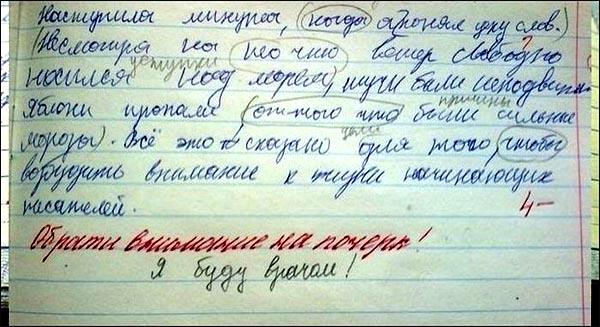 Наступила минута, (когда я понял цену слов.)
(Несмотря на то что) ветер свободно
уступки
носился над морем), тучи были неподвижн
причины
Яблони пропали, (оттого что были сильные
цели
морозы). Всё это сказано для того, чтобы
возбудить внимание к жизни начинающих
писателей.
4-
Обрати внимание на почерк!
Я буду врачом!